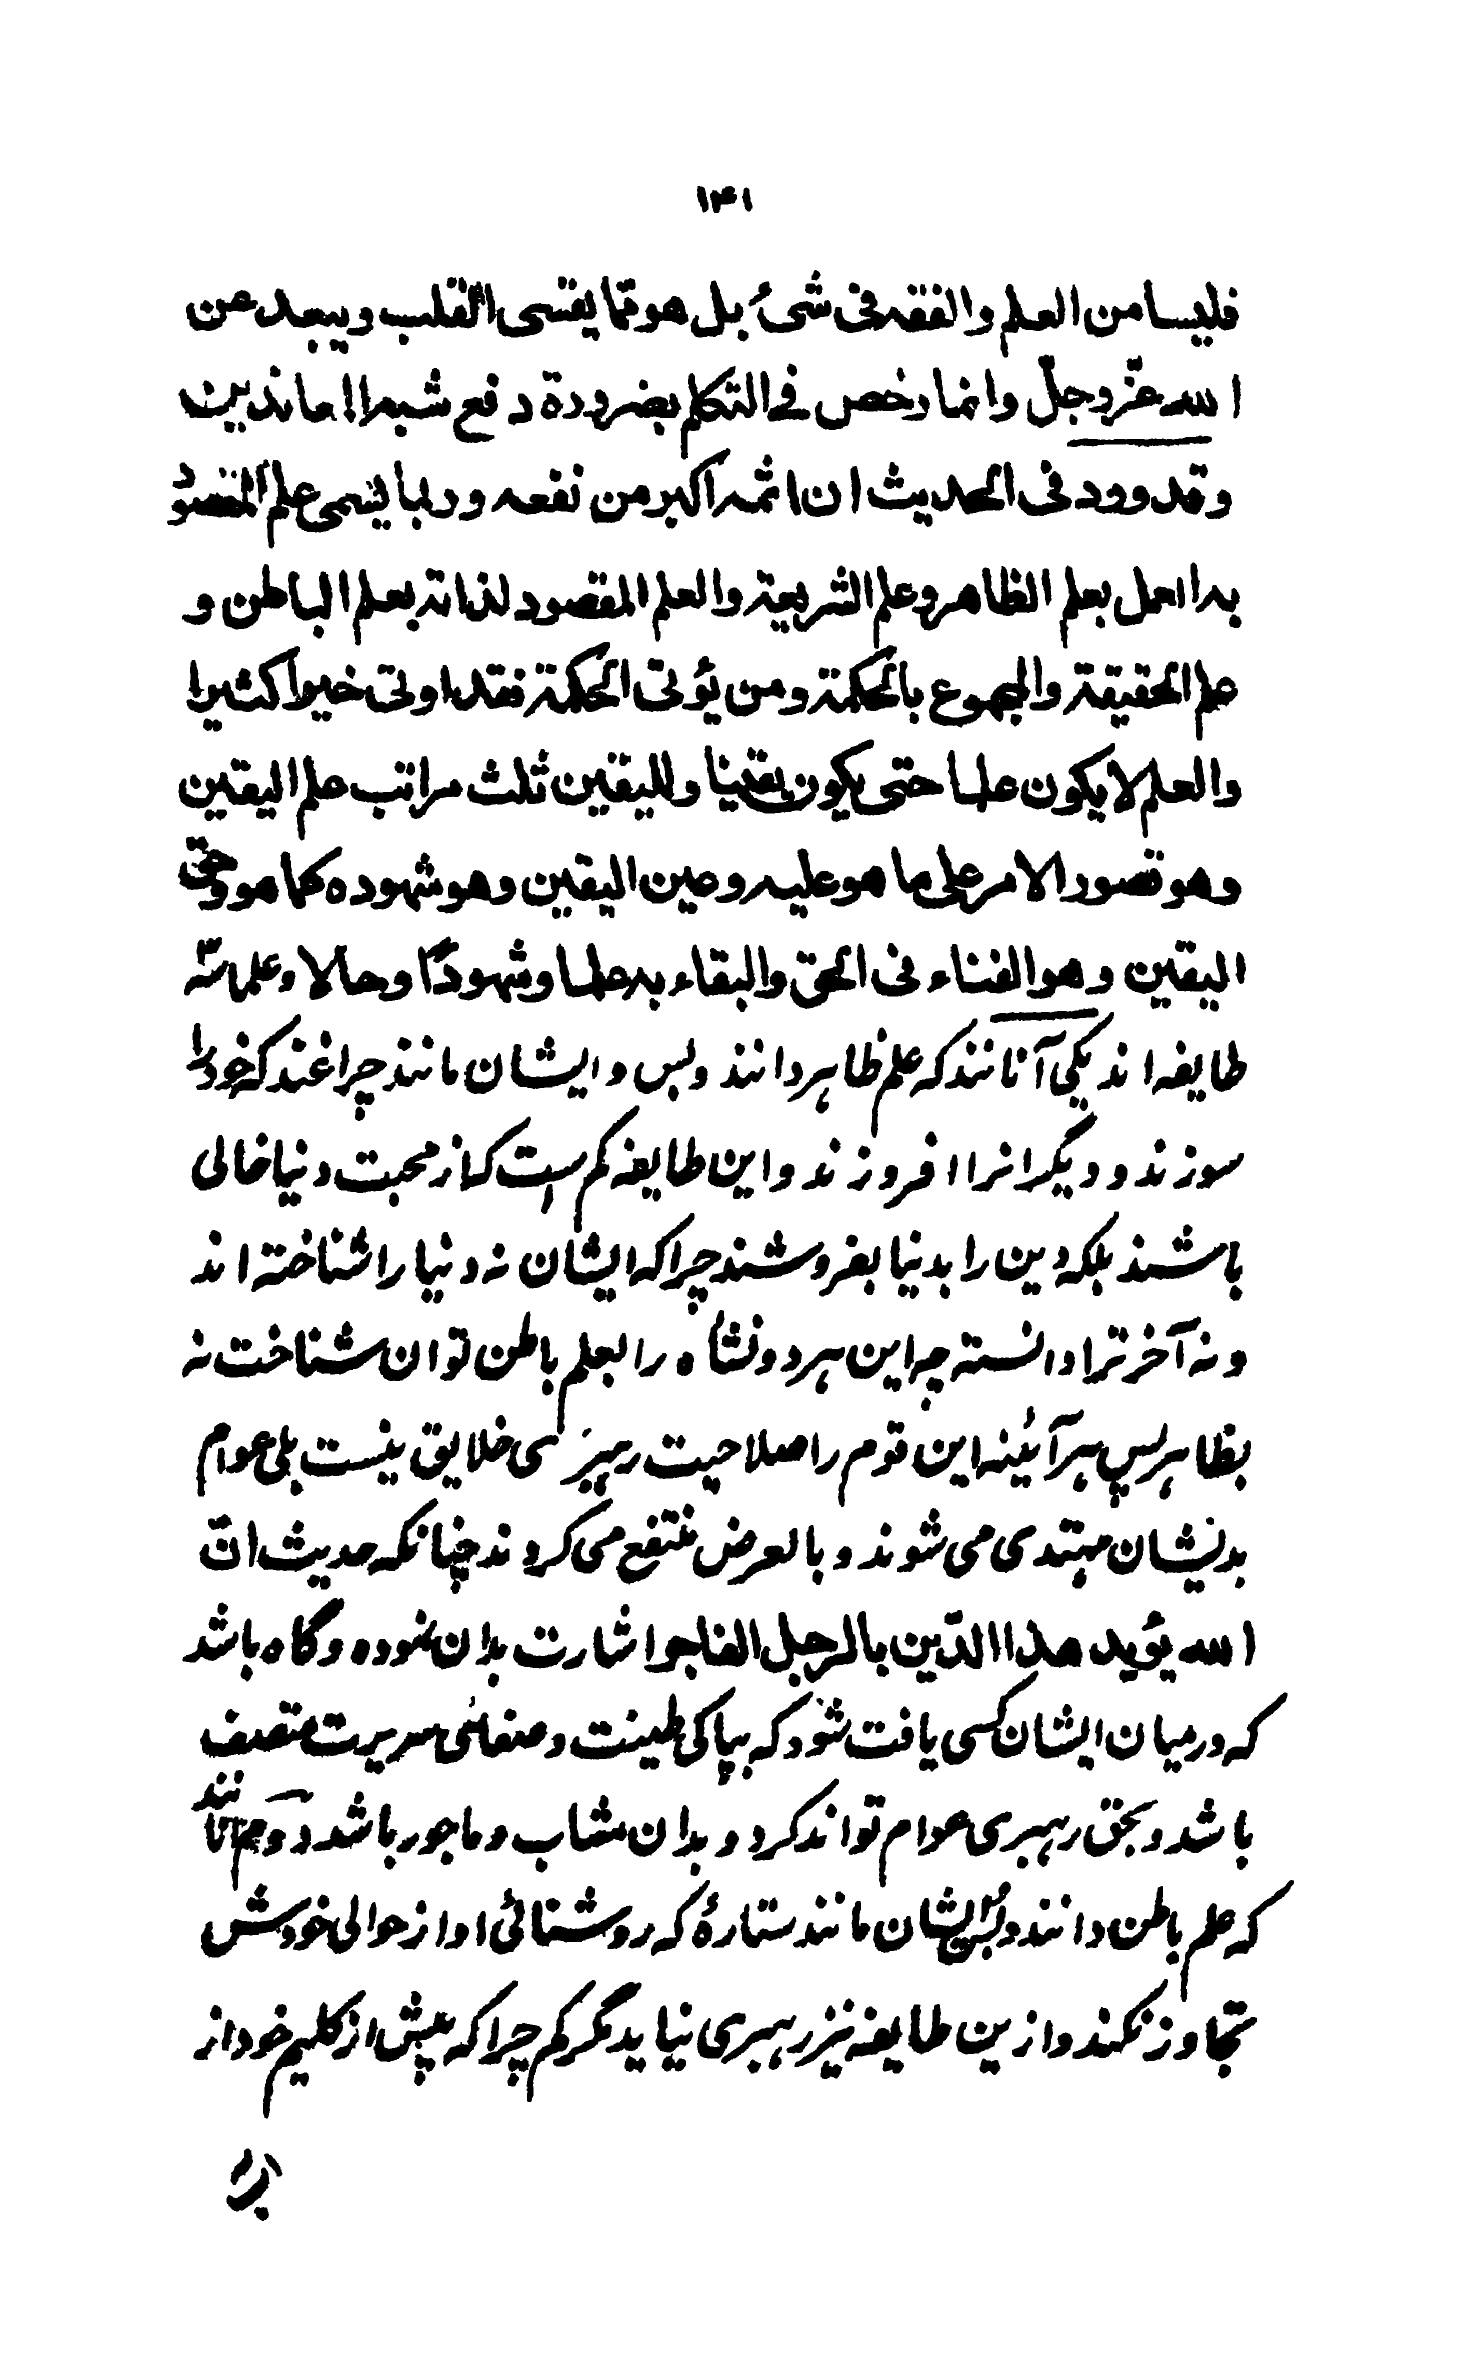 ۱۴۱
فلیسا من العلم والفقه فی شیٔ بل هو مما یقسی القلب ویبعد عن
الله عزّوجلّ وانما رخص فی التکلم بضرورة دفع شبه المعاندین
وقد ورد فی الحدیث ان اثمه اکبر من نفعه وربما یسمی علم المقصود
به العمل بعلم الظاهر وعلم الشریعة والعلم المقصود لذاته بعلم الباطن و
علم الحقیقة والمجموع بالحکمة ومن یؤتی الحکمة فقد اوتی خیرا کثیرا
والعلم لا یکون علما حتی یکون یقینا وللیقین ثلث مراتب علم الیقین
وهو تصور الامر علی ما هو علیه وعین الیقین وهو شهوده کما هو وحق
الیقین وهو الفناء فی الحق والبقاء به علما وشهودًا وحالا وعلما سه
طایفه اند یکی آنانند که علم ظاهر دانند و بس و ایشان مانند چراغند که خود را
سوزند و دیگرانرا افروزند و این طایفه کم است که از محبت دنیا خالی
باشند بلکه دین را بدنیا بفروشند چرا که ایشان نه دنیا را شناخته اند
و نه آخرت را دانسته چه این هر دو نشاه را بعلم باطن توان شناخت نه
بظاهر پس هر آئینه این قوم را صلاحیت رهبری خلایق نیست بلی عوام
بدیشان مهتدی می شوند و بالعرض منتفع می گردند چنانکه حدیث انّ
الله یؤید هذا الدّین بالرجل الفاجر اشارت بدان نموده و گاه باشد
که در میان ایشان کسی یافت شود که بپاکی طینت و صفای سریرت متصف
باشد و بحق رهبری عوام تواند کرد و بدان مثاب و ماجور باشد دوم آنانند
که علم باطن دانند و بس ایشان مانند ستارۀ که روشنائی او از حوالی خودش
تجاوز نکند و ازین طایفه نیز رهبری نیاید مگر کم چرا که بیش از کلیم خود از